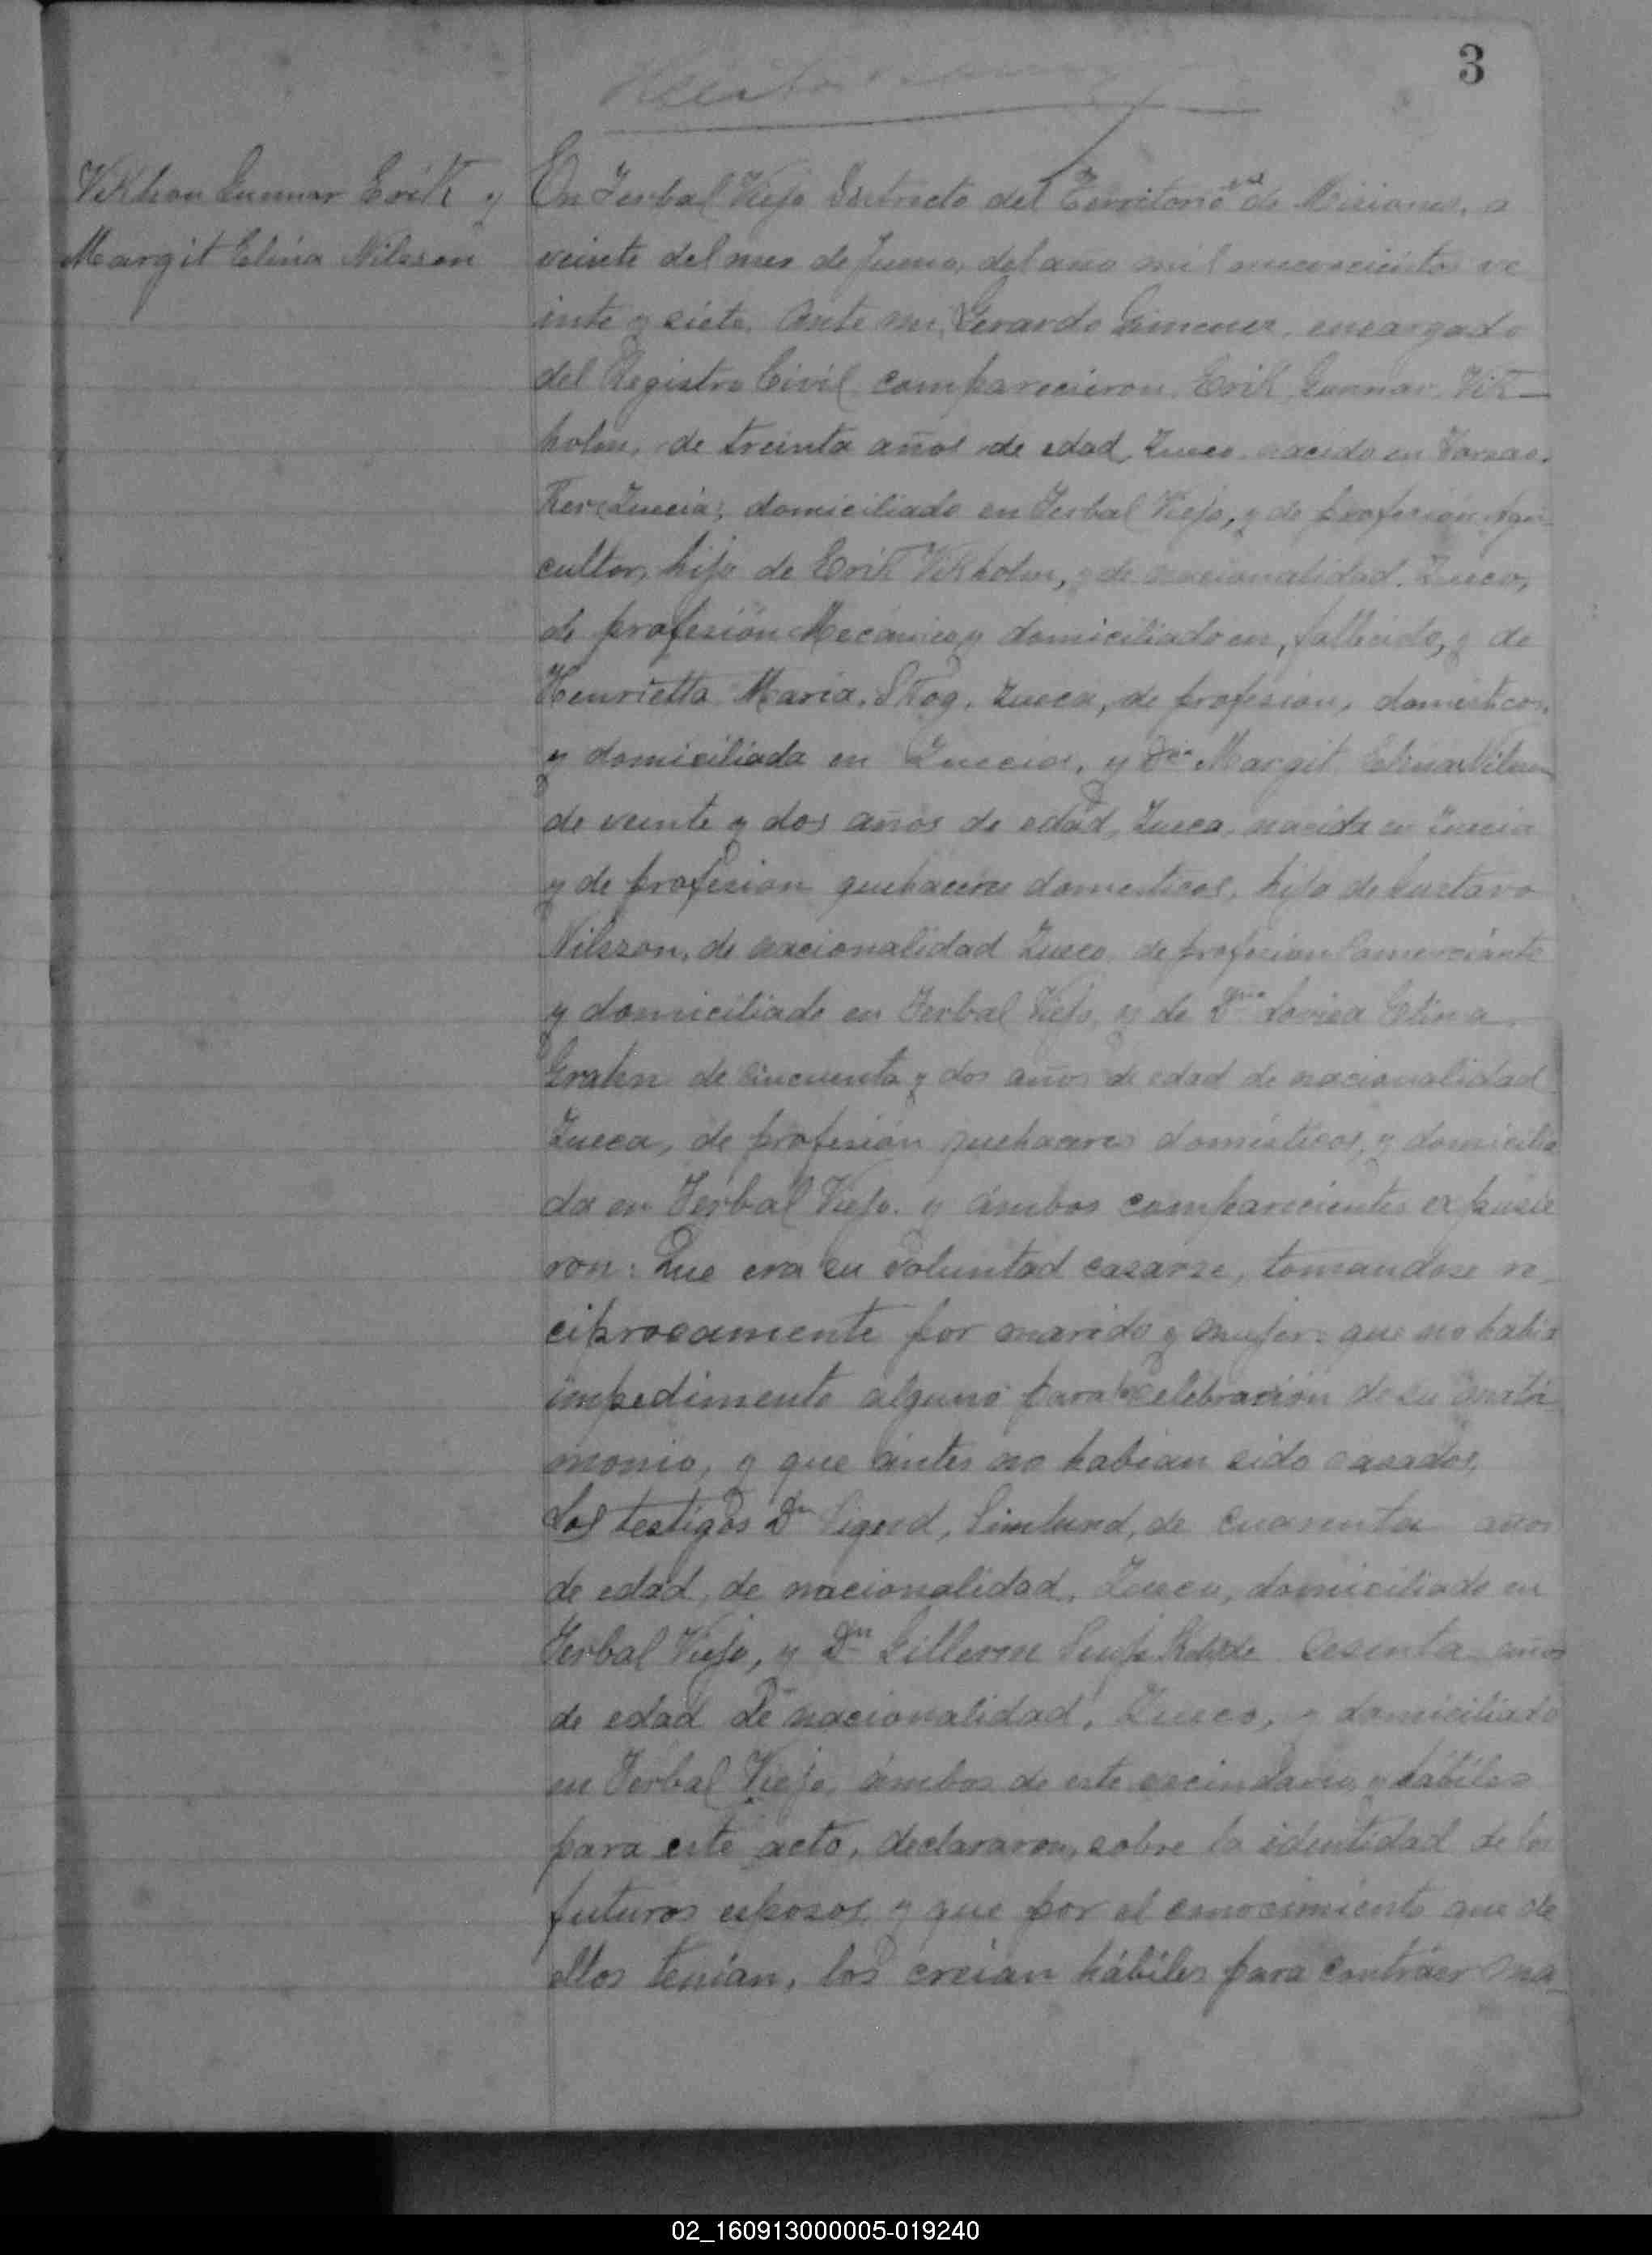 3
Erik y
Margit Elina Nilsson
En Yerbal Viejo Distrito del Territorio de Misiones, a
veinte del mes de Junio, del año mil nuevecientos ve
inte y siete. Ante mi, Gerardo Gimenez, encargado
del Registro Civil comparecieron Erik Gunnar Vik-
holm, de treinta años de edad, Zueco, nacido en
Zuecia; domiciliado en Yerbal Viejo, y de profesión Agri
cultor, hijo de Erik Vikholm, y de nacionalidad Zueco,
de profesión Mecánico y domiciliado en, fallecido, y de
Henrietta Maria, Skog, Zueca, de profesion, domesticos,
y domiciliada en Zuecia, y Margit Elina Nilsson
de veinte y dos años de edad, Zueca, nacida en Zuecia
y de profesion quehaceres domesticos, hija de Gustavo
Nilsson, de nacionalidad Zueco, de profesion Comerciante
y domiciliado en Yerbal Viejo, y de Dña Lovisa
Grahn de cincuenta y dos años de edad de nacionalidad
Zueca, de profesión quehaceres domésticos, y domicilia
da en Yerbal Viejo. y ámbos comparecientes expusie
ron: Que era su voluntad casarse, tomandose re
ciprocamente por marido y mujer: que no habia
impedimento alguno para la celebración de su matri
monio, y que ántes no habian sido casados.
Los testigos Dn de cuarenta años
de edad, de nacionalidad, Zueco, domiciliado en
Yerbal Viejo, y Dn de sesenta años
de edad de nacionalidad, Zueco, y domiciliado
en Yerbal Viejo, ámbos de este vecindario, y hábiles
para este acto, declararon, sobre la identidad de los
futuros esposos, y que por el conocimiento que de
ellos tenían, los creían hábiles para contráer ma
02_160913000005-019240